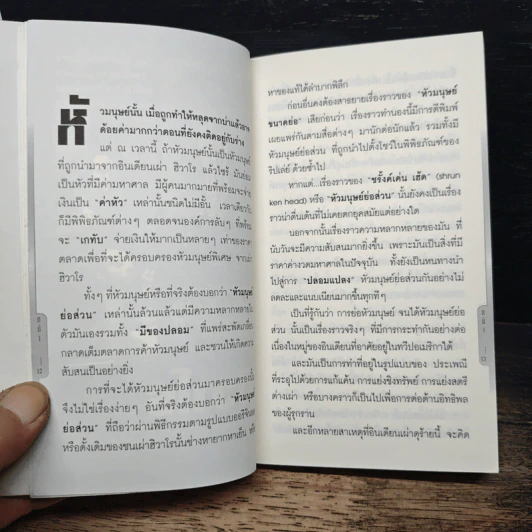 หัวมนุษย์นั้น เมื่อถูกทำให้หลุดจากบ่าแล้วอาจ
ด้อยค่ามากกว่าตอนที่ยังคงติดอยู่กับร่าง
แต่ ณ เวลานี้ ถ้าหัวมนุษย์นั้นเป็นหัวมนุษย์
ที่ถูกนำมาจากอินเดียนเผ่า ฮิวาโร แล้วไซร้ มันย่อม
เป็นหัวที่มีค่ามหาศาล มีผู้คนมากมายที่พร้อมจะจ่าย
เงินเป็น "ค่าหัว" เหล่านั้นชนิดไม่มีอั้น เวลาเดียวกัน
ก็มีพิพิธภัณฑ์ต่างๆ ตลอดจนองค์การลับๆ ที่พร้อม
จะ "เกทับ" จ่ายเงินให้มากเป็นหลายๆ เท่าของราคา
ตลาดเพื่อที่จะได้ครอบครองหัวมนุษย์พิเศษ จากเผ่า
ฮิวาโร
ทั้งๆ ที่หัวมนุษย์หรือที่จริงต้องบอกว่า "หัวมนุษย์
ย่อส่วน" เหล่านั้นล้วนแล้วแต่มีความหลากหลายใน
ตัวมันเองรวมทั้ง "มีของปลอม" ที่แพร่สะพัดเกลื่อน
กลาดเต็มตลาดการค้าหัวมนุษย์ และชวนให้เกิดความ
สับสนเป็นอย่างยิ่ง
การที่จะได้หัวมนุษย์ย่อส่วนมาครอบครองนั้น
จึงไม่ใช่เรื่องง่ายๆ อันที่จริงต้องบอกว่า "หัวมนุษย์
ย่อส่วน" ที่ถือว่าผ่านพิธีกรรมตามรูปแบบออริจินัล
หรือดั้งเดิมของชนเผ่าฮิวาโรนั้นช่างหายากหาเย็น หรือ
12
หาของแท้ได้ลำบากพิลึก
ก่อนอื่นคงต้องสาธยายเรื่องราวของ "หัวมนุษย์
ขนาดย่อ" เสียก่อนว่า เรื่องราวทำนองนี้มีการตีพิมพ์
เผยแพร่กันตามสื่อต่างๆ มานักต่อนักแล้ว รวมทั้งมี
หัวมนุษย์ย่อส่วน ที่ถูกนำไปตั้งโชว์ในพิพิธภัณฑ์ของ
ริปลีย์ ด้วยซ้ำไป
หากแต่...เรื่องราวของ "ชรั้งค์เค่น เฮ้ด" (shrun
ken head) หรือ "หัวมนุษย์ย่อส่วน" นั้นยังคงเป็นเรื่อง
ราวน่าตื่นเต้นที่ไม่เคยตกยุคสมัยแต่อย่างใด
นอกจากนั้นเรื่องราวความหลากหลายของมัน ที่
นับวันจะมีความสับสนมากยิ่งขึ้น เพราะมันเป็นสิ่งที่มี
ราคาค่างวดมหาศาลในปัจจุบัน ทั้งยังเป็นหนทางนำ
ไปสู่การ "ปลอมแปลง" หัวมนุษย์ย่อส่วนกันอย่างไม่
ลดละและแนบเนียนมากขึ้นทุกทีๆ
เป็นที่รู้กันว่า การย่อหัวมนุษย์ จนได้หัวมนุษย์ย่อ
ส่วน นั้นเป็นเรื่องราวจริงๆ ที่มีการกระทำกันอย่างต่อ
เนื่องในหมู่ของอินเดียนที่อาศัยอยู่ในทวีปอเมริกาใต้
และมันเป็นการทำที่อยู่ในรูปแบบของ ประเพณี
ที่ระอุไปด้วยการแก้แค้น การแย่งชิงทรัพย์ การแย่งสตรี
ต่างเผ่า หรือบางคราวก็เป็นไปเพื่อการต่อต้านอิทธิพล
ของผู้รุกราน
และอีกหลายสาเหตุที่อินเดียนเผ่าดุร้ายนี้ จะคิด
13